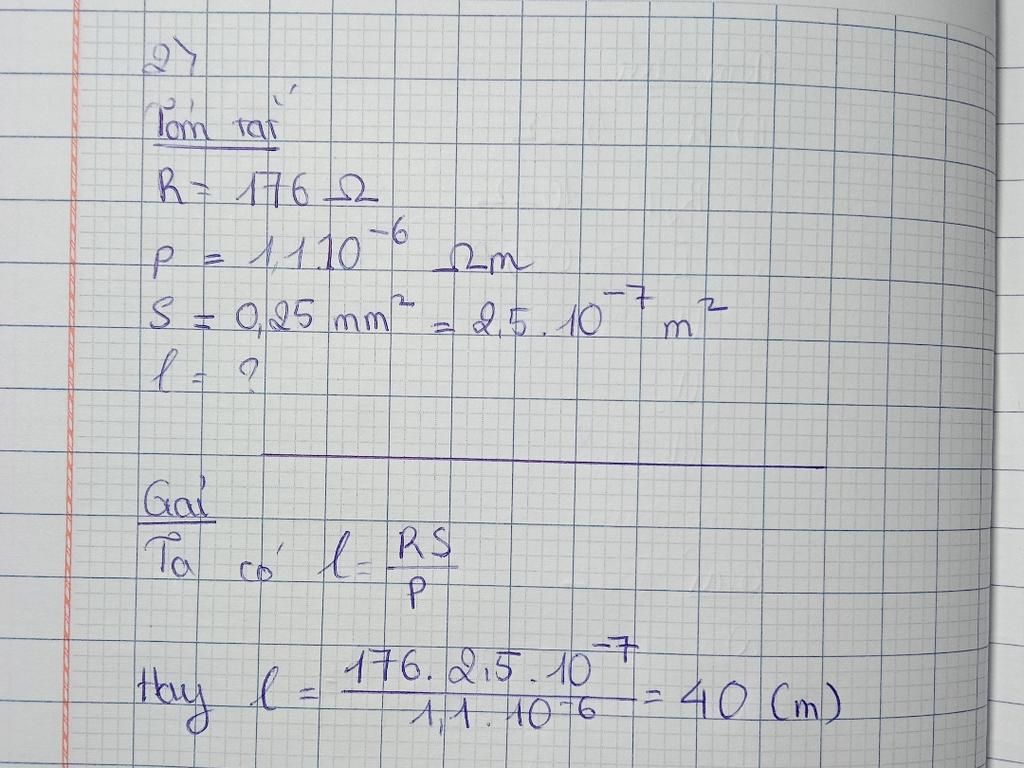 2)
Tóm tắt
R = 176 Ω
ρ = 1,1.10⁻⁶ Ωm
S = 0,25 mm² = 2,5 . 10⁻⁷ m²
l = ?
Gải
Ta có l = RS/ρ
Hay l = 176. 2,5 . 10⁻⁷ / 1,1 . 10⁻⁶ = 40 (m)